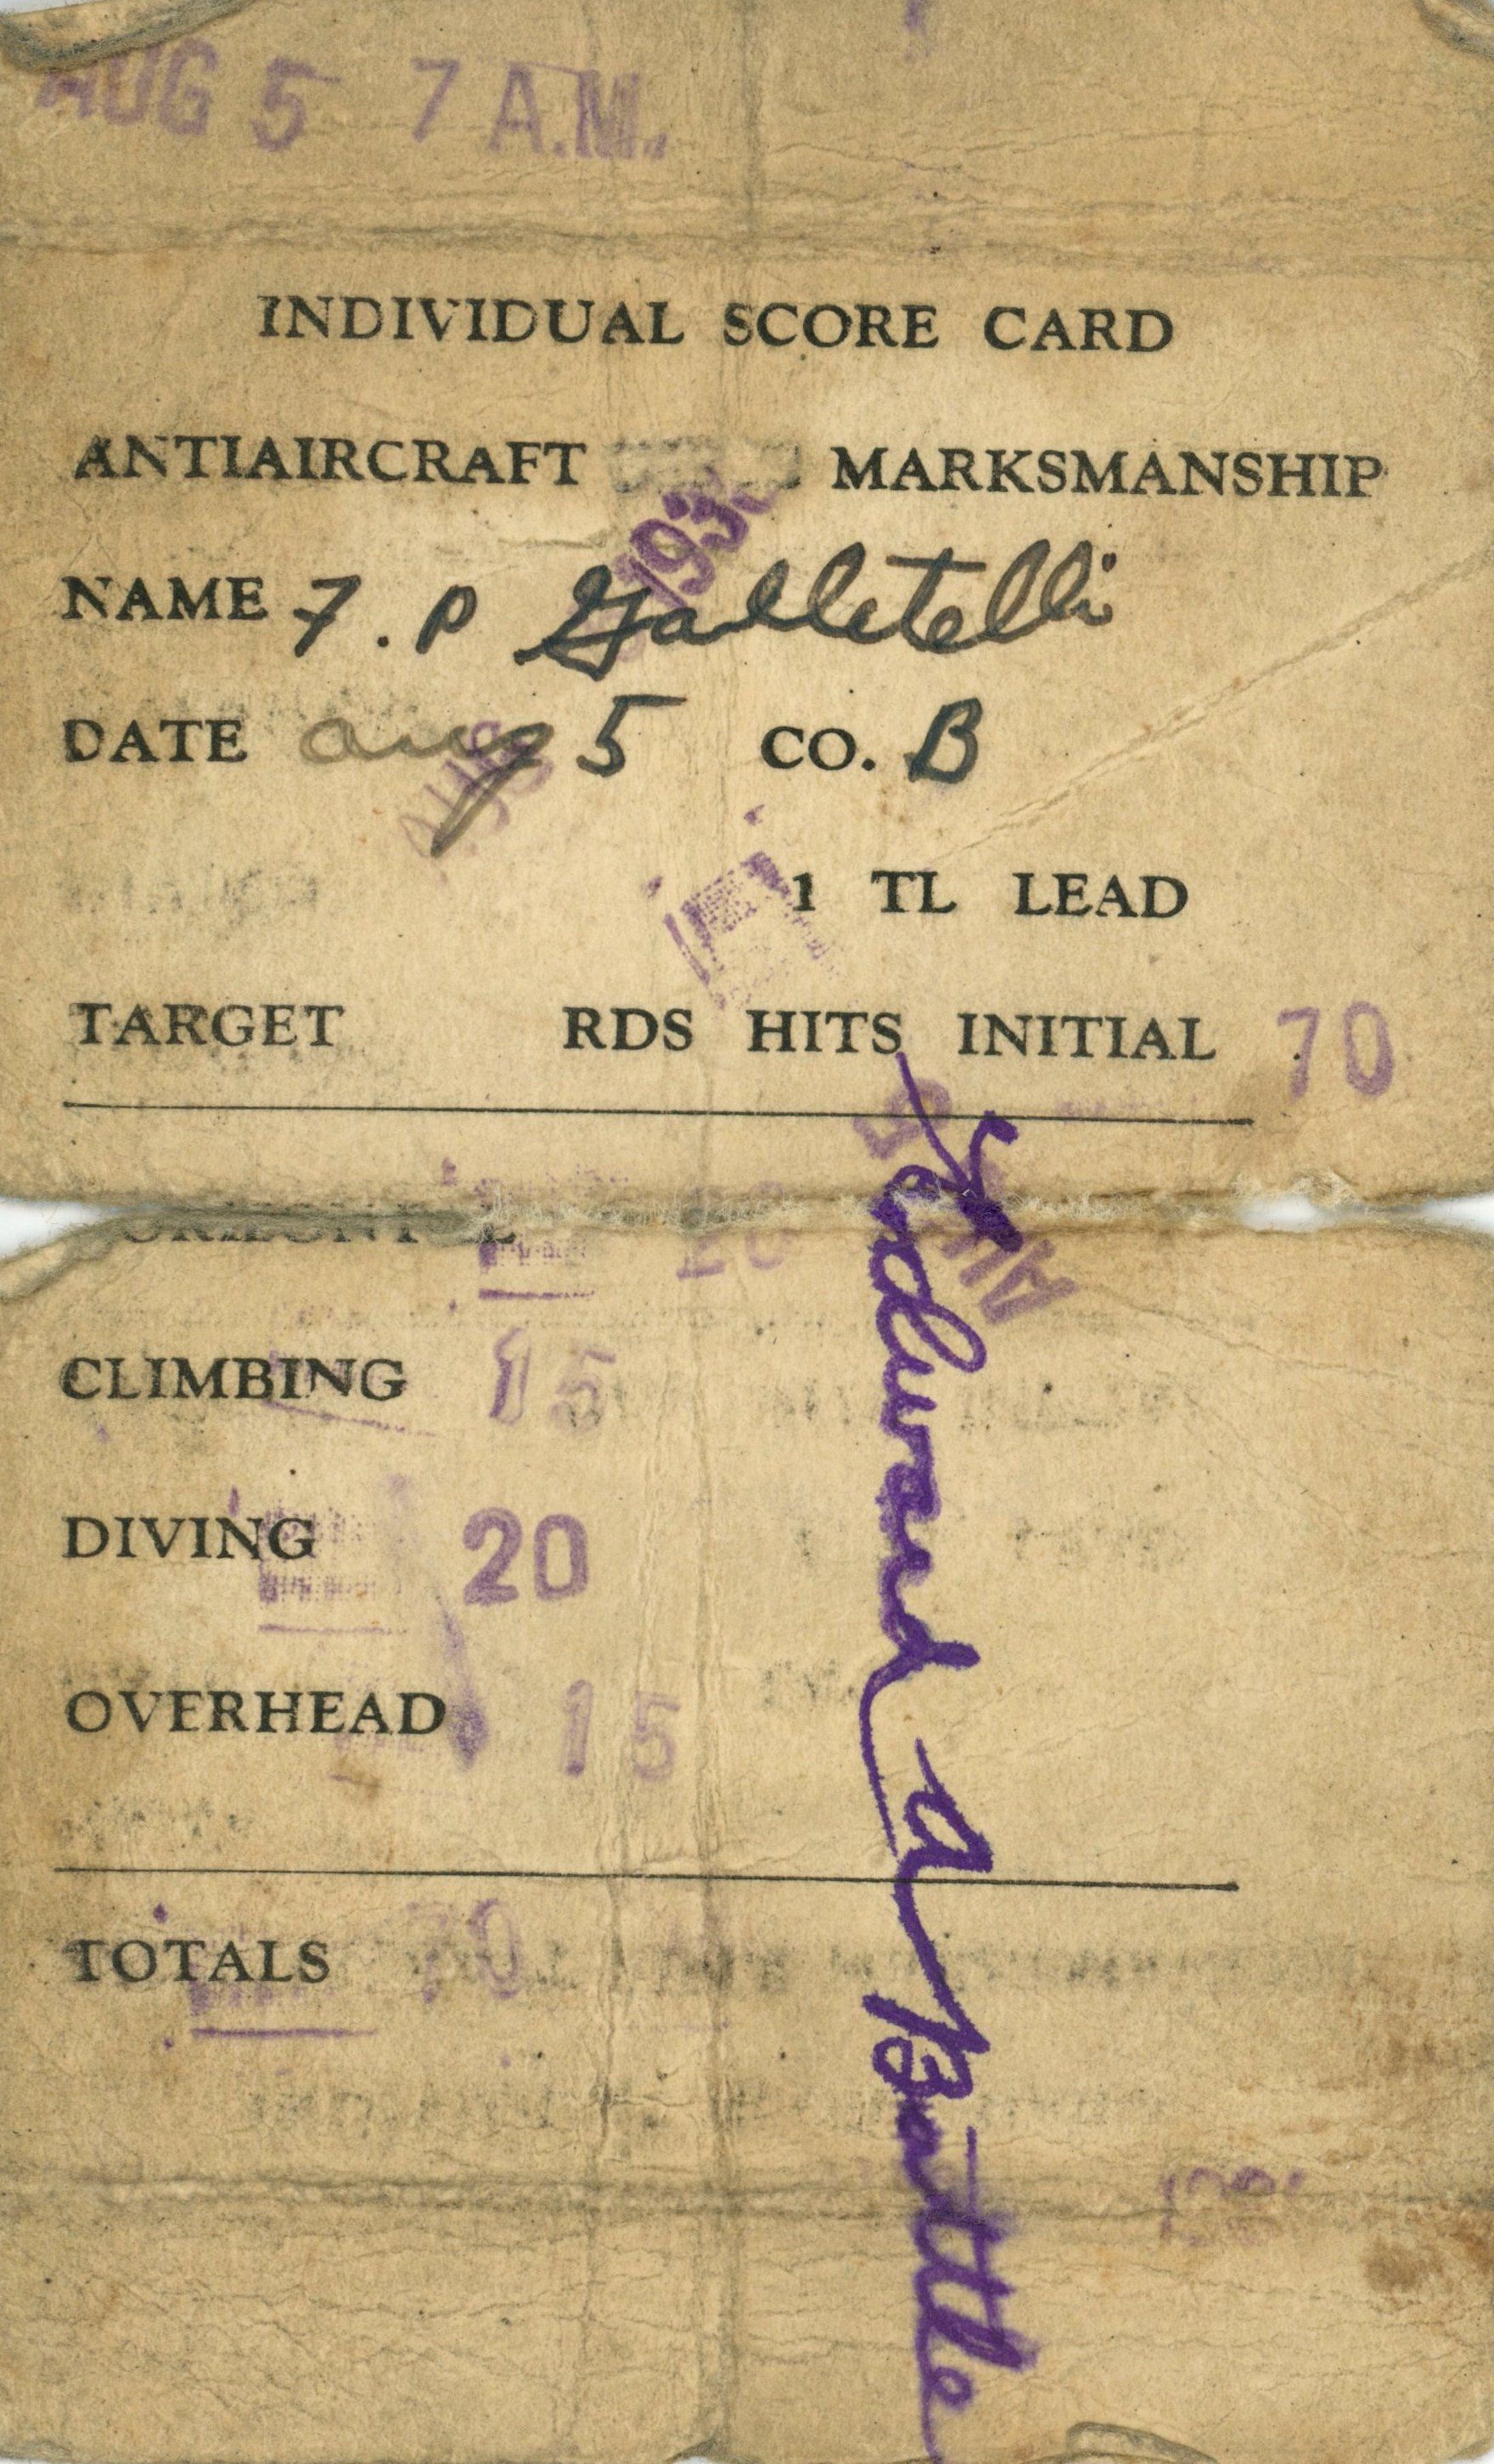 AUG 5 7 A.M.
INDIVIDUAL SCORE CARD
ANTIAIRCRAFT MARKSMANSHIP
NAME F. P Galletelli
DATE Aug 5 CO. B
1 TL LEAD
TARGET RDS HITS INITIAL 70
HORIZONTAL 20
CLIMBING 15
DIVING 20
OVERHEAD 15
TOTALS 70
Edward A Battle
AUG 5